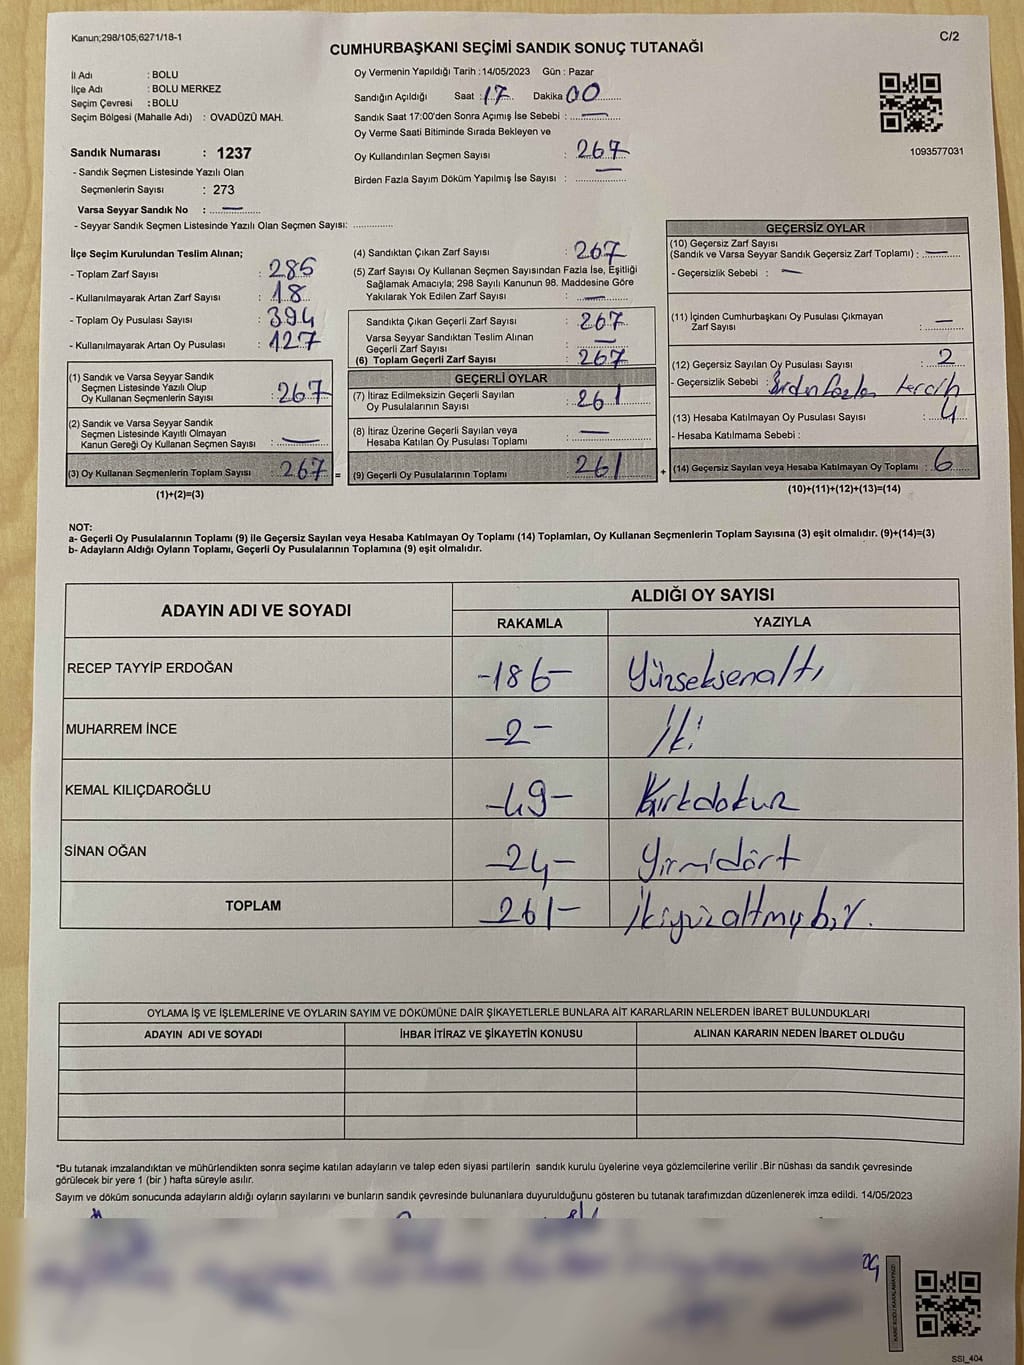 Kanun;298/105;6271/18-1
C/2
CUMHURBAŞKANI SEÇİMİ SANDIK SONUÇ TUTANAĞI
İl Adı : BOLU
İlçe Adı : BOLU MERKEZ
Seçim Çevresi : BOLU
Seçim Bölgesi (Mahalle Adı) : OVADÜZÜ MAH.
Oy Vermenin Yapıldığı Tarih : 14/05/2023 Gün : Pazar
Sandığın Açıldığı Saat : 17 Dakika 00
Sandık Saat 17:00'den Sonra Açımış İse Sebebi : —
Oy Verme Saati Bitiminde Sırada Bekleyen ve
Oy Kullandırılan Seçmen Sayısı : 267
Birden Fazla Sayım Döküm Yapılmış İse Sayısı : —
1093577031
Sandık Numarası : 1237
- Sandık Seçmen Listesinde Yazılı Olan
Seçmenlerin Sayısı : 273
Varsa Seyyar Sandık No : —
- Seyyar Sandık Seçmen Listesinde Yazılı Olan Seçmen Sayısı: ..............
İlçe Seçim Kurulundan Teslim Alınan;
- Toplam Zarf Sayısı : 285
- Kullanılmayarak Artan Zarf Sayısı : 18
- Toplam Oy Pusulası Sayısı : 394
- Kullanılmayarak Artan Oy Pusulası : 127
(1) Sandık ve Varsa Seyyar Sandık
Seçmen Listesinde Yazılı Olup
Oy Kullanan Seçmenlerin Sayısı : 267
(2) Sandık ve Varsa Seyyar Sandık
Seçmen Listesinde Kayıtlı Olmayan
Kanun Gereği Oy Kullanan Seçmen Sayısı : —
(3) Oy Kullanan Seçmenlerin Toplam Sayısı : 267 =
(1)+(2)=(3)
(4) Sandıktan Çıkan Zarf Sayısı : 267
(5) Zarf Sayısı Oy Kullanan Seçmen Sayısından Fazla İse, Eşitliği
Sağlamak Amacıyla; 298 Sayılı Kanunun 98. Maddesine Göre
Yakılarak Yok Edilen Zarf Sayısı : —
Sandıkta Çıkan Geçerli Zarf Sayısı : 267
Varsa Seyyar Sandıktan Teslim Alınan
Geçerli Zarf Sayısı : —
(6) Toplam Geçerli Zarf Sayısı : 267
GEÇERLİ OYLAR
(7) İtiraz Edilmeksizin Geçerli Sayılan
Oy Pusulalarının Sayısı : 261
(8) İtiraz Üzerine Geçerli Sayılan veya
Hesaba Katılan Oy Pusulası Toplamı : —
(9) Geçerli Oy Pusulalarının Toplamı : 261 +
GEÇERSİZ OYLAR
(10) Geçersiz Zarf Sayısı
(Sandık ve Varsa Seyyar Sandık Geçersiz Zarf Toplamı) : —
- Geçersizlik Sebebi : —
(11) İçinden Cumhurbaşkanı Oy Pusulası Çıkmayan
Zarf Sayısı : —
(12) Geçersiz Sayılan Oy Pusulası Sayısı : 2
- Geçersizlik Sebebi : Birden fazla tercih
(13) Hesaba Katılmayan Oy Pusulası Sayısı : 4
- Hesaba Katılmama Sebebi :
(14) Geçersiz Sayılan veya Hesaba Katılmayan Oy Toplamı : 6
(10)+(11)+(12)+(13)=(14)
NOT:
a- Geçerli Oy Pusulalarının Toplamı (9) ile Geçersiz Sayılan veya Hesaba Katılmayan Oy Toplamı (14) Toplamları, Oy Kullanan Seçmenlerin Toplam Sayısına (3) eşit olmalıdır. (9)+(14)=(3)
b- Adayların Aldığı Oyların Toplamı, Geçerli Oy Pusulalarının Toplamına (9) eşit olmalıdır.
ADAYIN ADI VE SOYADI
ALDIĞI OY SAYISI
RAKAMLA YAZIYLA
RECEP TAYYİP ERDOĞAN -186- Yüzseksenaltı
MUHARREM İNCE -2- İki
KEMAL KILIÇDAROĞLU -49- Kırkdokuz
SİNAN OĞAN -24- Yirmidört
TOPLAM -261- İkiyüzaltmışbir.
OYLAMA İŞ VE İŞLEMLERİNE VE OYLARIN SAYIM VE DÖKÜMÜNE DAİR ŞİKAYETLERLE BUNLARA AİT KARARLARIN NELERDEN İBARET BULUNDUKLARI
ADAYIN ADI VE SOYADI İHBAR İTİRAZ VE ŞİKAYETİN KONUSU ALINAN KARARIN NEDEN İBARET OLDUĞU
*Bu tutanak imzalandıktan ve mühürlendikten sonra seçime katılan adayların ve talep eden siyasi partilerin sandık kurulu üyelerine veya gözlemcilerine verilir .Bir nüshası da sandık çevresinde
görülecek bir yere 1 (bir ) hafta süreyle asılır.
Sayım ve döküm sonucunda adayların aldığı oyların sayılarını ve bunların sandık çevresinde bulunanlara duyurulduğunu gösteren bu tutanak tarafımızdan düzenlenerek imza edildi. 14/05/2023
SSI_404